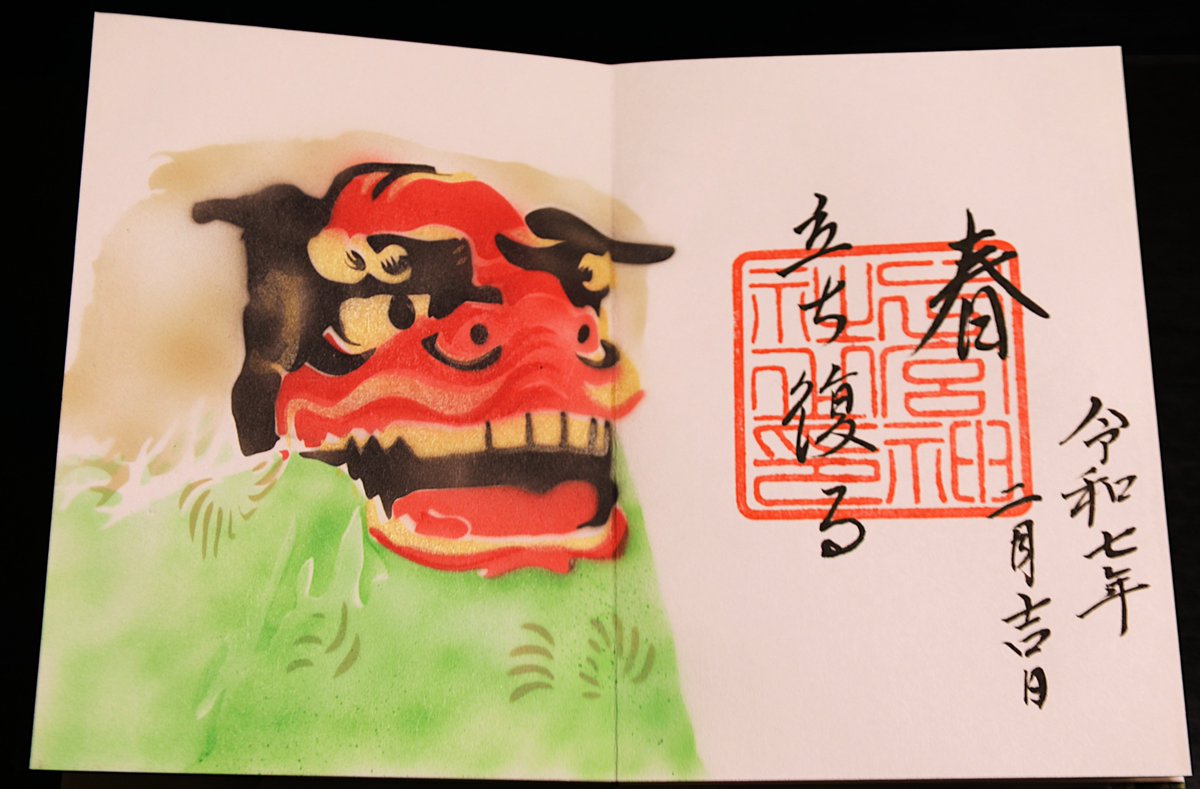 令和七年
二月吉日
春
立ち復る